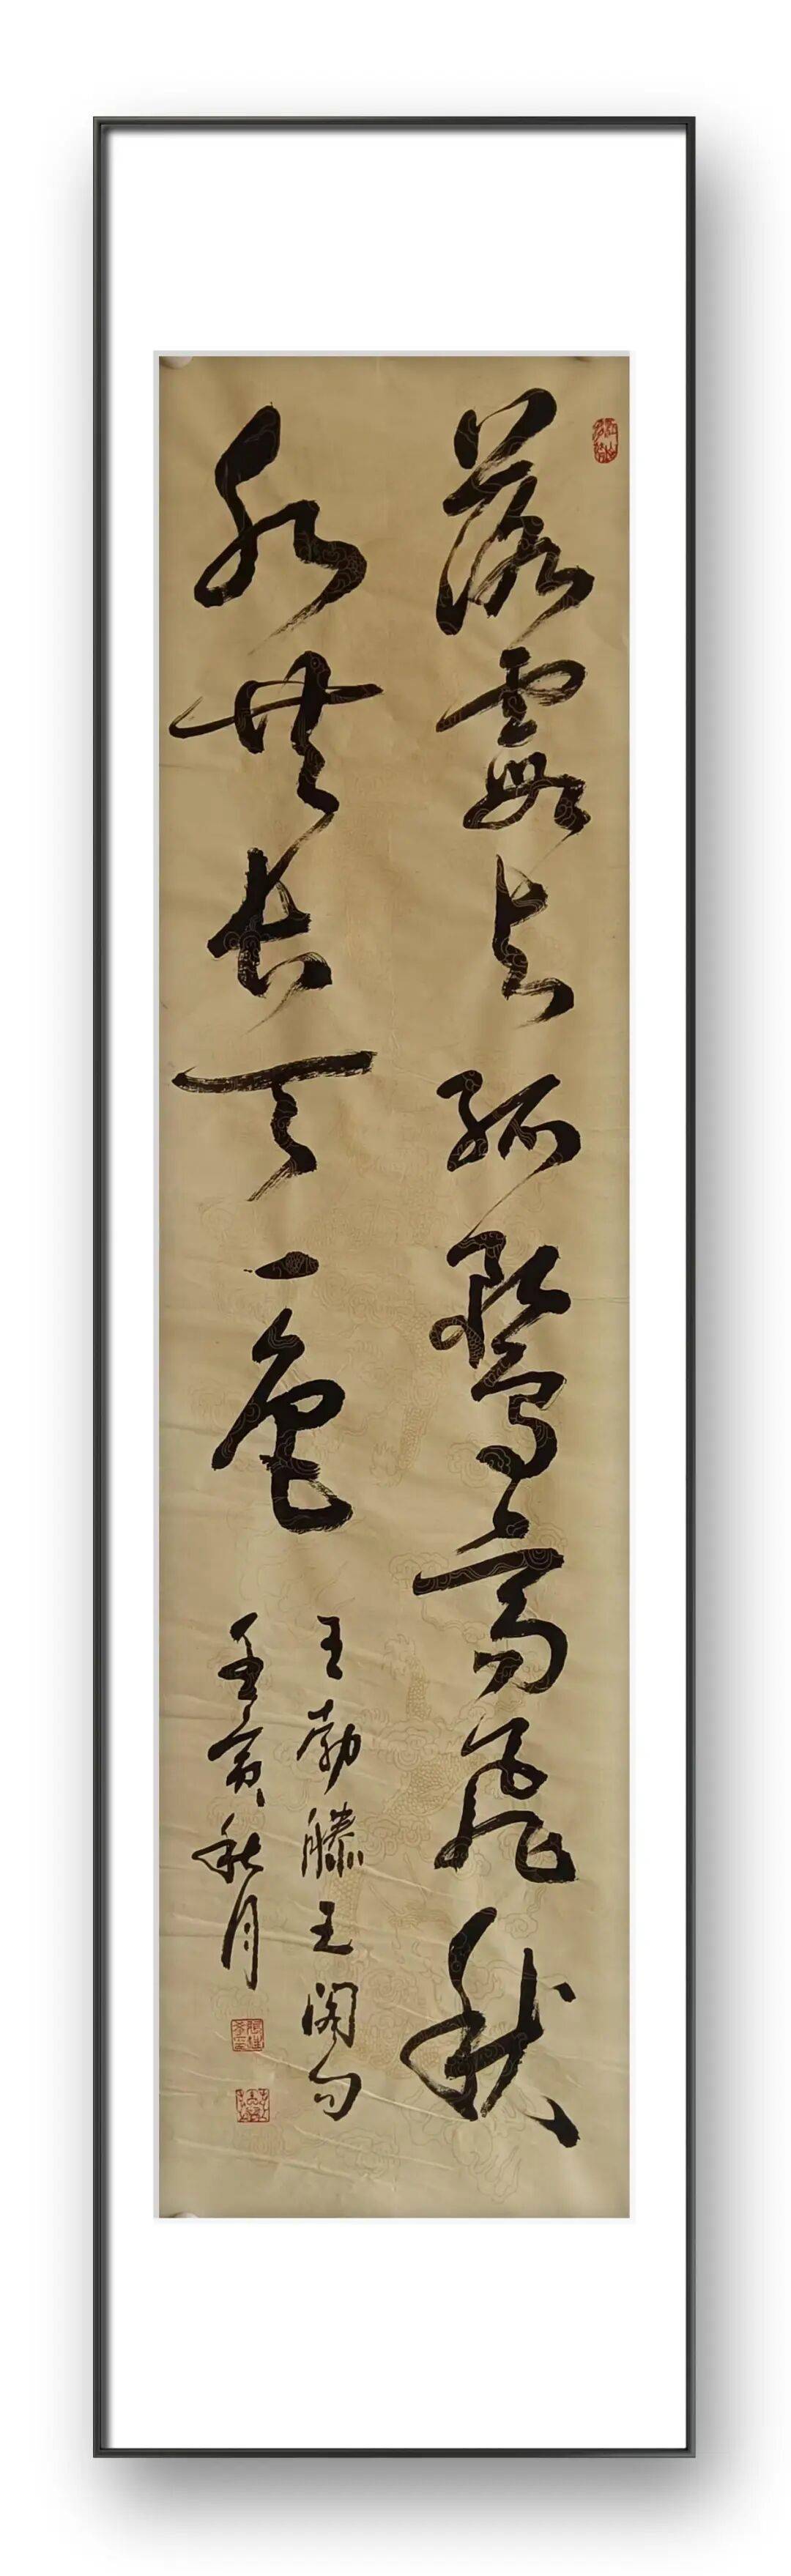 落霞与孤鹜高飛秋
水共长天一色
王勃滕王阁句
壬寅秋月